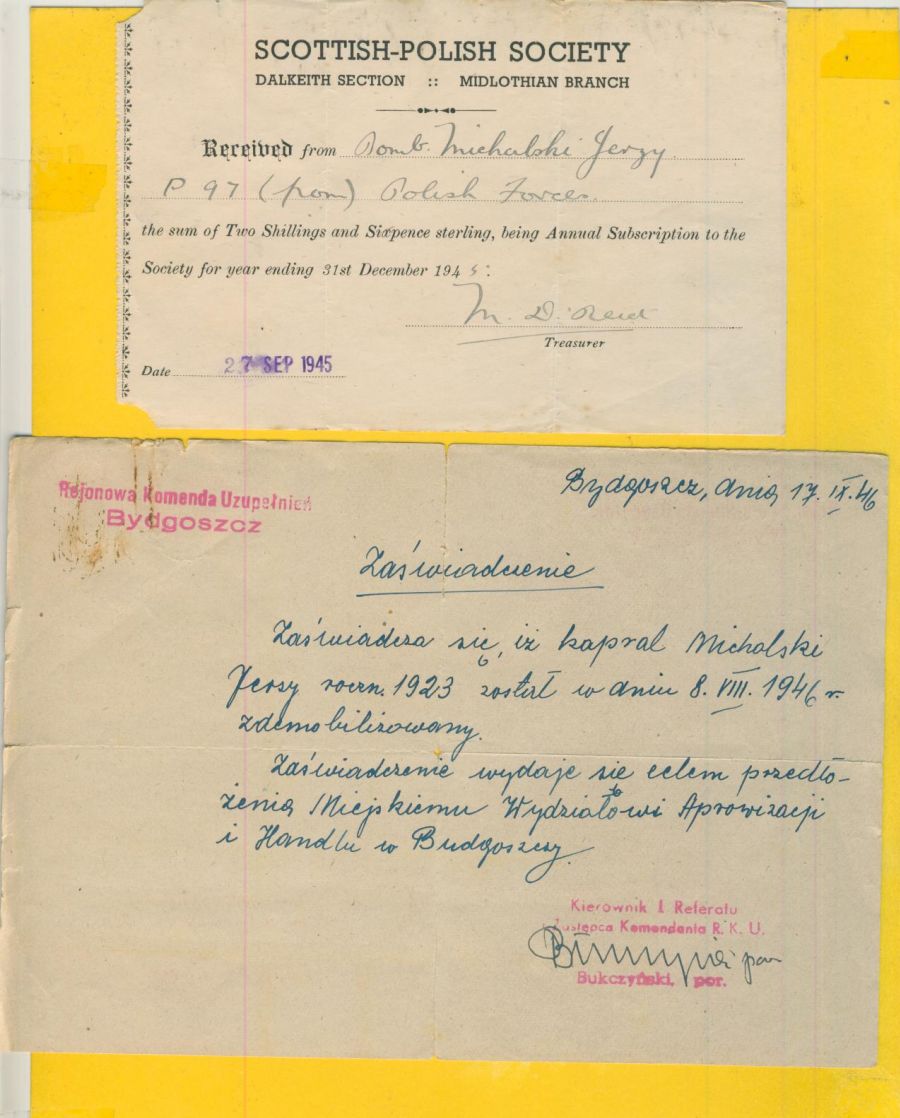 SCOTTISH-POLISH SOCIETY
DALKEITH SECTION :: MIDLOTHIAN BRANCH
Received from Bomb. Michalski Jerzy.
P 97 (pom) Polish Forces.
the sum of Two Shillings and Sixpence sterling, being Annual Subscription to the
Society for year ending 31st December 1945:
M. D. Reid
Treasurer
Date 27 SEP 1945
Rejonowa Komenda Uzupełnień
Bydgoszcz
Bydgoszcz, dnia 17.IX.46
Zaświadczenie
Zaświadcza się, iż kapral Michalski
Jerzy roczn. 1923 został w dniu 8.VIII.1946 r.
zdemobilizowany.
Zaświadczenie wydaje się celem przedło-
żenia Miejskiemu Wydziałowi Aprowizacji
i Handlu w Bydgoszczy.
Kierownik I Referatu
Zastępca Komendanta R. K. U.
por
Bukczyński, por.